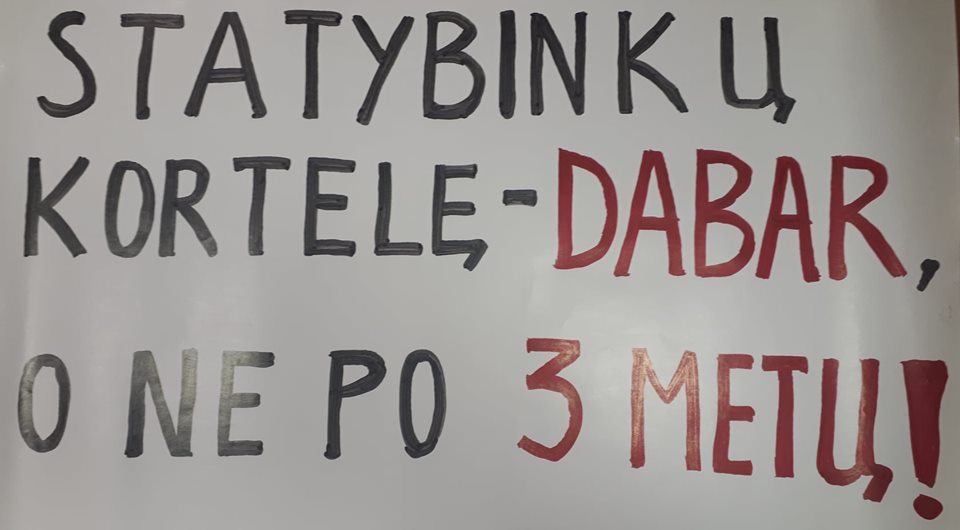 STATYBINKŲ
KORTELĘ-DABAR,
O NE PO 3 METŲ!